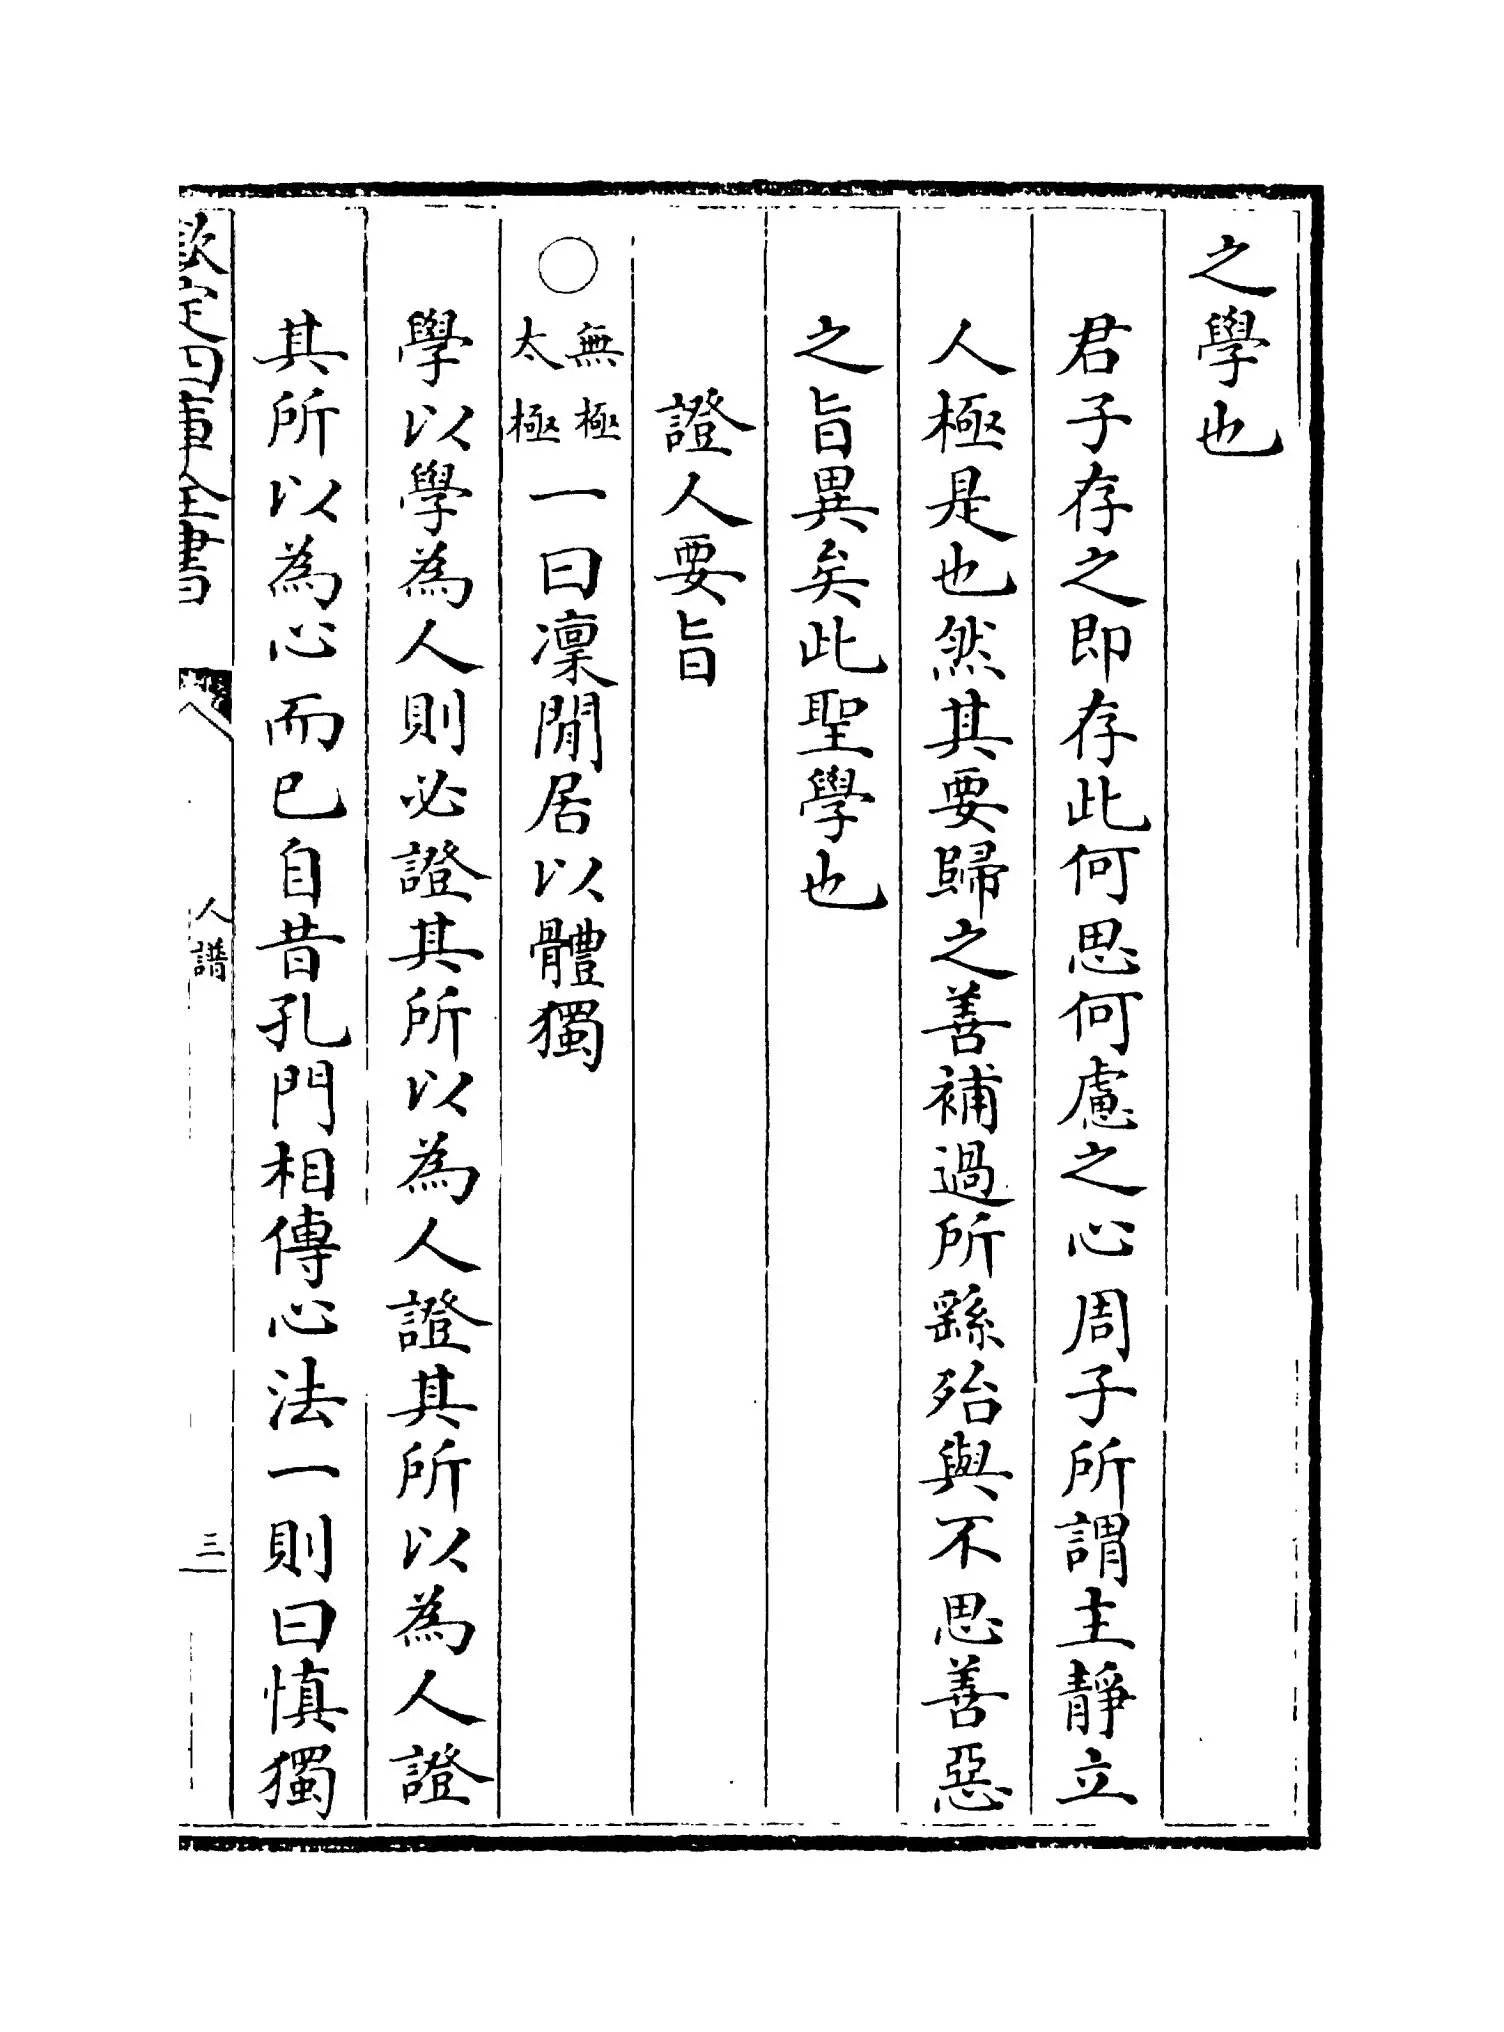 之學也
君子存之即存此何思何慮之心周子所謂主靜立
人極是也然其要歸之善補過所繇殆與不思善惡
之旨異矣此聖學也
證人要旨
○無極太極一曰凜閒居以體獨
學以學為人則必證其所以為人證其所以為人證
其所以為心而已自昔孔門相傳心法一則曰慎獨
欽定四庫全書
人譜
三